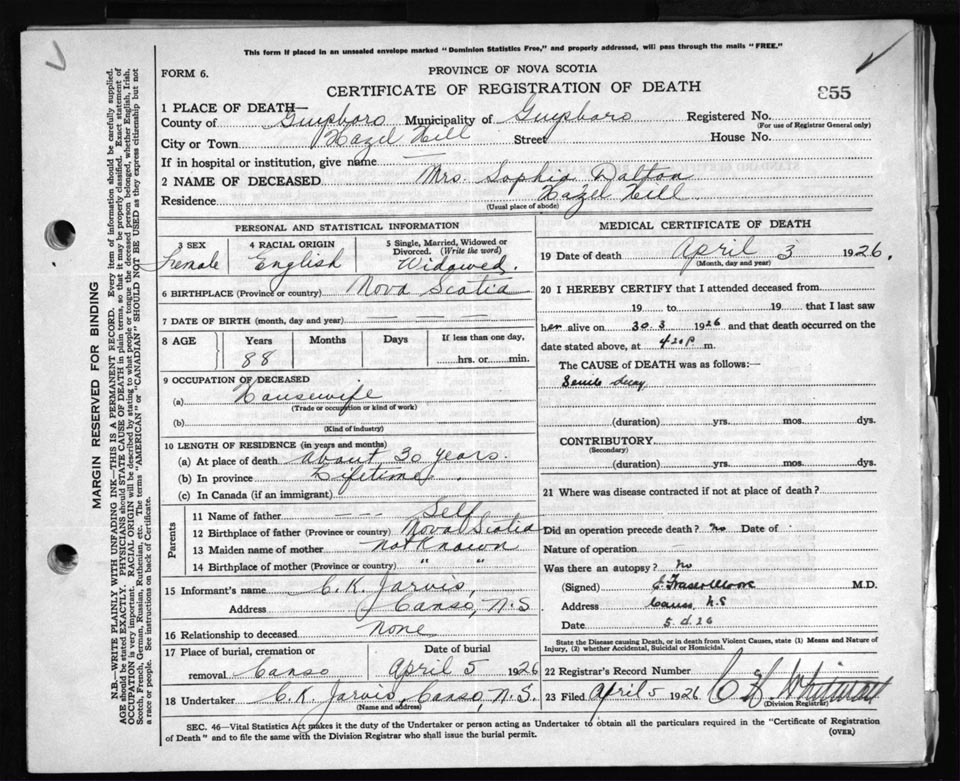 This form if placed in an unsealed envelope marked "Dominion Statistics Free," and properly addressed, will pass through the mails "FREE."
FORM 6.
PROVINCE OF NOVA SCOTIA
CERTIFICATE OF REGISTRATION OF DEATH
855
1 PLACE OF DEATH—
County of Guysboro Municipality of Guysboro Registered No.
(For use of Registrar General only)
City or Town Hazel Hill Street House No.
If in hospital or institution, give name —
2 NAME OF DECEASED Mrs. Sophia Dalton
Residence Hazel Hill
(Usual place of abode)
PERSONAL AND STATISTICAL INFORMATION
3 SEX Female
4 RACIAL ORIGIN English
5 Single, Married, Widowed or Divorced. (Write the word) Widowed.
6 BIRTHPLACE (Province or country) Nova Scotia
7 DATE OF BIRTH (month, day and year) — — — —
8 AGE Years 88 Months Days If less than one day, hrs. or min.
9 OCCUPATION OF DECEASED
(a) Housewife
(Trade or occupation or kind of work)
(b)
(Kind of industry)
10 LENGTH OF RESIDENCE (in years and months)
(a) At place of death about 30 years.
(b) In province Lifetime.
(c) In Canada (if an immigrant)
Parents
11 Name of father — — — Self
12 Birthplace of father (Province or country) Nova Scotia
13 Maiden name of mother not Known
14 Birthplace of mother (Province or country) " "
15 Informant's name C. K. Jarvis,
Address Canso, N.S
16 Relationship to deceased none
17 Place of burial, cremation or removal Canso
Date of burial April 5 1926
18 Undertaker C. K. Jarvis, Canso, N.S.
(Name and address)
MEDICAL CERTIFICATE OF DEATH
19 Date of death April 3 1926.
(Month, day and year)
20 I HEREBY CERTIFY that I attended deceased from
19 to 19 that I last saw
her alive on 30.3 1926 and that death occurred on
date stated above, at 4 20 P m.
The CAUSE of DEATH was as follows:—
Senile decay
(duration) yrs. mos. dys.
CONTRIBUTORY
(Secondary)
(duration) yrs. mos. dys.
21 Where was disease contracted if not at place of death?
Did an operation precede death? no Date of
Nature of operation
Was there an autopsy? no
(Signed) M.D.
Address Canso N.S
Date 5.4.26
State the Disease causing Death, or in death from Violent Causes, state (1) Means and Nature of
Injury, (2) whether Accidental, Suicidal or Homicidal.
22 Registrar's Record Number
23 Filed April 5 1926
(Division Registrar)
SEC. 46—Vital Statistics Act makes it the duty of the Undertaker or person acting as Undertaker to obtain all the particulars required in the "Certificate of Registration
of Death" and to file the same with the Division Registrar who shall issue the burial permit.
(OVER)
MARGIN RESERVED FOR BINDING
N.B.—WRITE PLAINLY WITH UNFADING INK—THIS IS A PERMANENT RECORD. Every item of information should be carefully supplied.
AGE should be stated EXACTLY. PHYSICIANS should STATE CAUSE OF DEATH in plain terms, so that it may be properly classified. Exact statement of
OCCUPATION is very important. RACIAL ORIGIN will be described by stating to what people or tongue the deceased person belonged, whether English, Irish,
Scotch, French, German, Russian, Ruthenian, etc. The terms "AMERICAN" or "CANADIAN" SHOULD NOT BE USED as they express citizenship but not
a race or people. See instructions on back of Certificate.